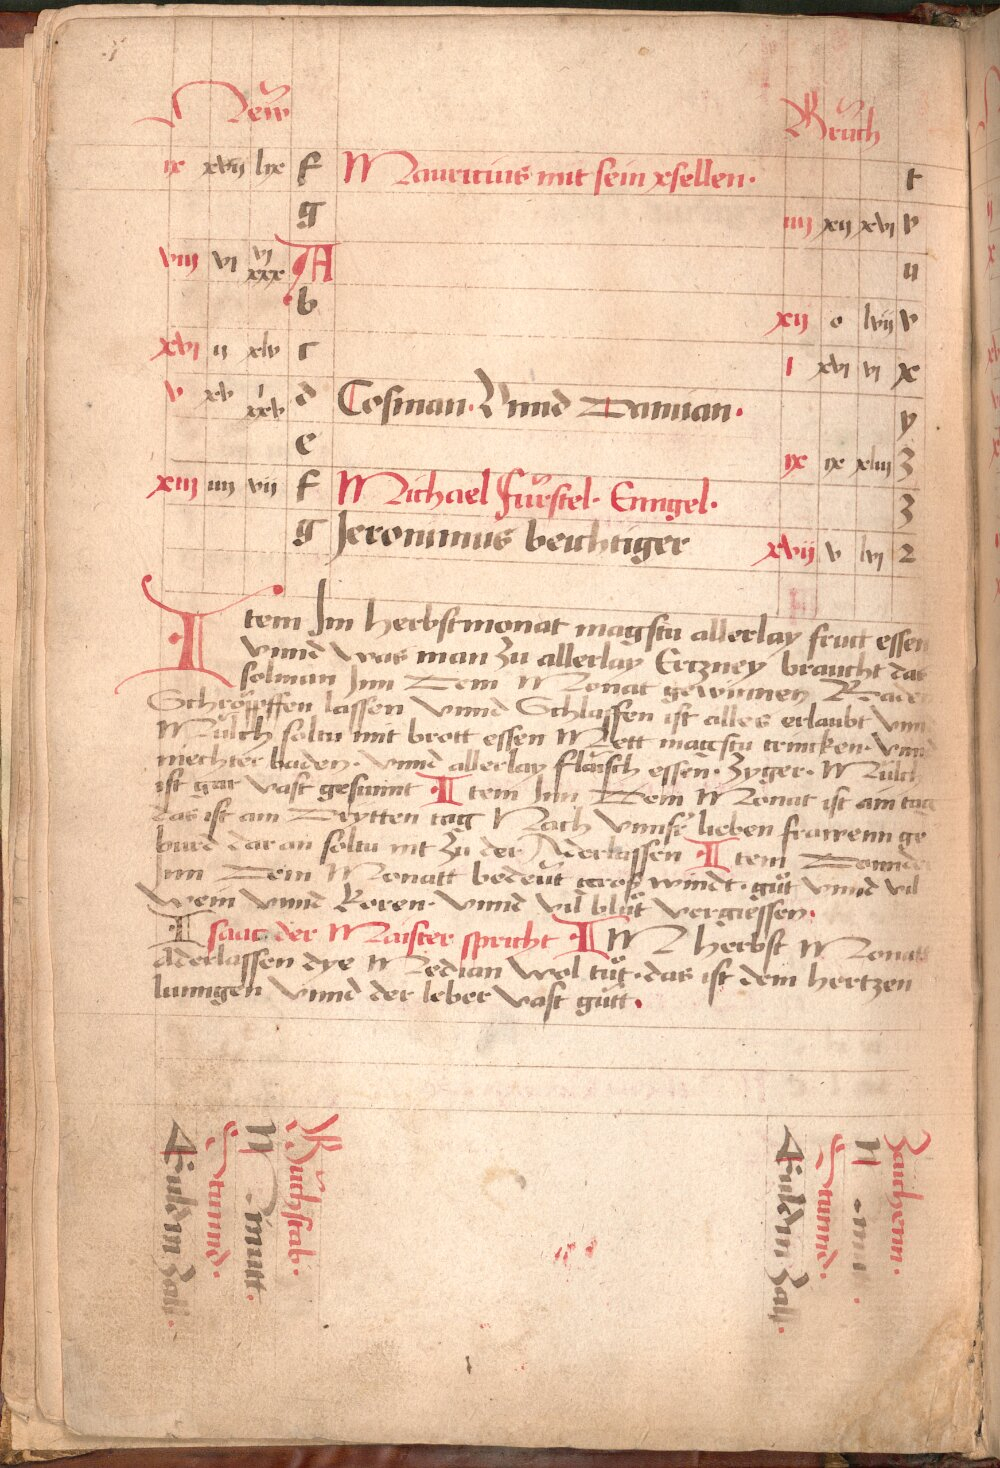 Neẅ Brüch
ix xvij lix f Mauricius mit sein xsellen. t
g iiij xij xvi v
viij vi vi xxx A u
b xij o lvij v
xvi ij xlv c i xvi vi x
v xv i xxv d Cosman. Vnnd Damian. y
e ix ix xliij z
xiij iiij vij f Michael Fürstel. Enngel. 3
g Jeronimus beichtiger xvij v lvi 2
Item Im herbstmonat magstu allerlay fruct essen
vnnd was man zu allerlay Ertzney braucht das
solman Jnn Dem Monat gewinnen Baden
Schröpffen lassen vnnd Schlaffen ist alles erlaubt vnnd
Mülch soltu mit brott essen Mett magstu trincken. vnnd
niechter baden. vnnd allerlay flaisch essen. Zyger. Mülch
ist gar vast gesunnt Item Jnn Dem Monat ist ain tag
das ist am Drytten tag Nach vnnser lieben frawenn ge
burd dar an soltu nit Zu der Aderlassen Item Donnder
Jnn Dem Monatt bedeüt gros windt. güt vnnd vil
wein vnnd Koren. vnnd vil blüt vergiessen.
Isaac der Maister spricht IM herbst Monatt
Aderlassen dye Median wol tüt. das ist dem hertzen
lunngen vnnd der leber vast gütt.
Güldin Zall.
Stunnd.
Minutt.
Büchstab.
Güldin Zall.
Stunnd.
Zaichenn.